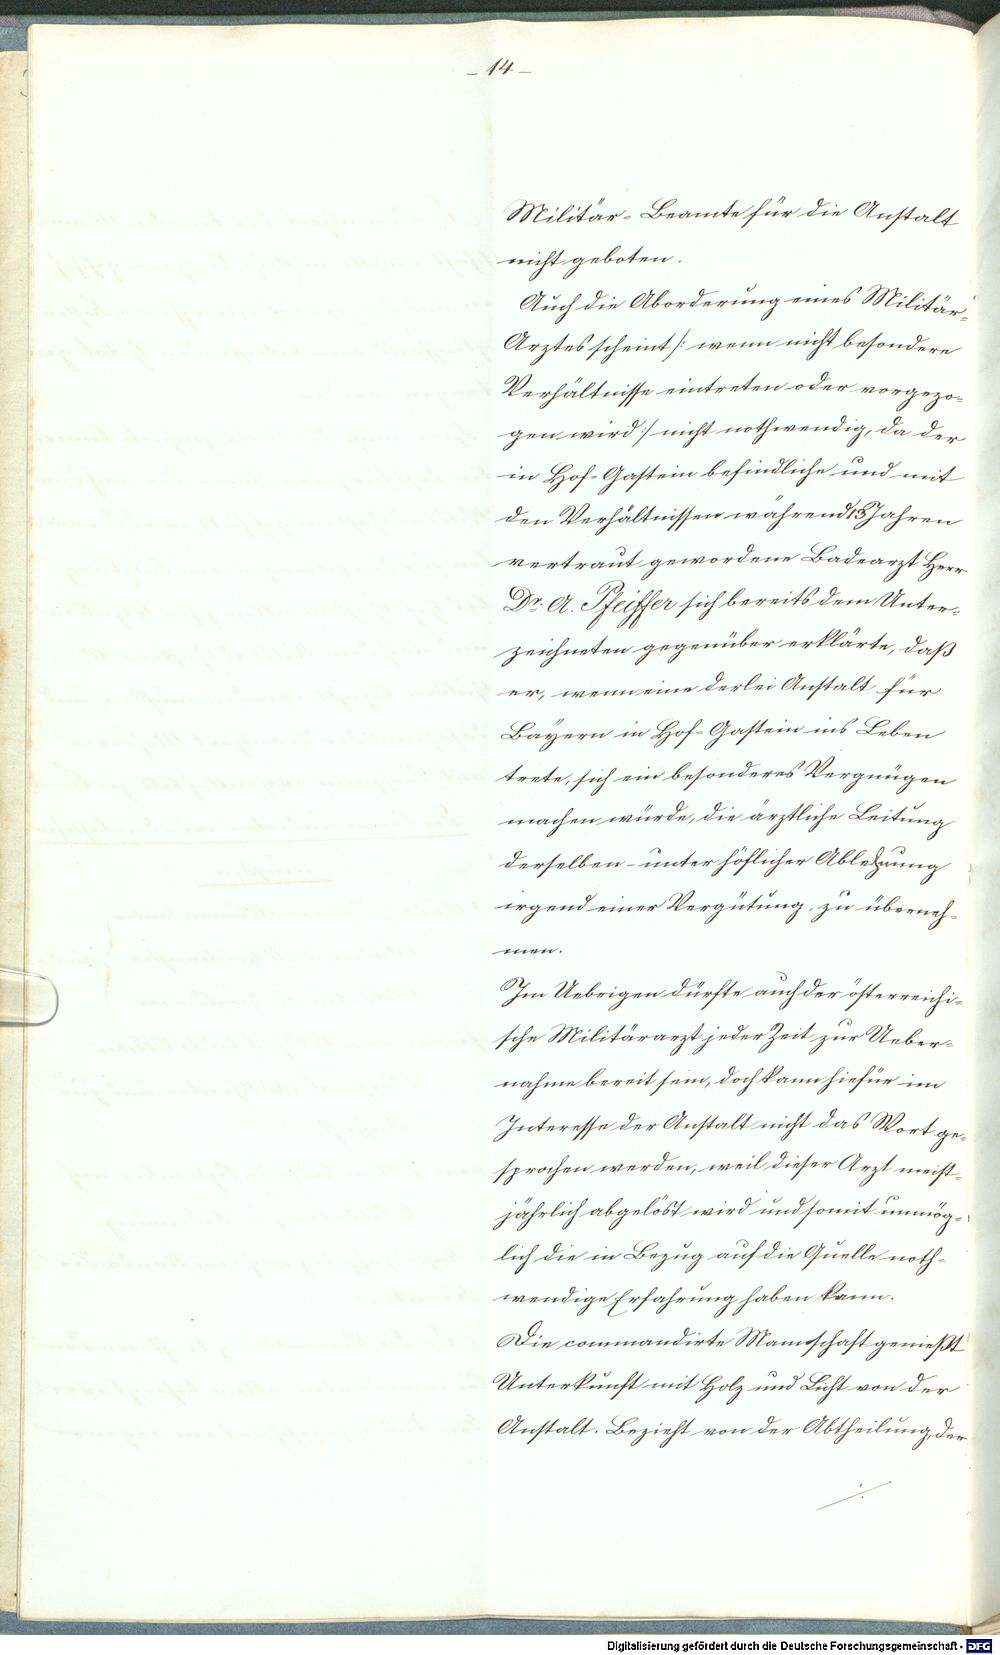 - 14 -
Militär-Beamte für die Anstalt
nicht geboten.
Auch die Aborderung eines Militär-
Arztes scheint /: wenn nicht besondere
Verhältnisse eintreten oder vorgezo-
gen wird :/ nicht nothwendig, da der
in Hof-Gastein befindliche und mit
den Verhältnissen während 15 Jahren
vertraut gewordene Badearzt Herr
Dr. A. Pfeiffer sich bereits dem Unter-
zeichneten gegenüber erklärte, daß
er, wenn eine derlei Anstalt für
Bayern in Hof-Gastein ins Leben
trete, sich ein besonderes Vergnügen
machen würde, die ärztliche Leitung
derselben - unter höflicher Ablehnung
irgend einer Vergütung, zu überneh-
men.
Im Uebrigen dürfte auch der österreichi-
sche Militärarzt jeder Zeit zur Ueber-
nahme bereit sein, doch kann hiefür im
Interesse der Anstalt nicht das Wort ge-
sprochen werden, weil dieser Arzt meist-
jährlich abgelöst wird und somit unmög-
lich die in Bezug auf die Quelle noth-
wendige Erfahrung haben kann.
Die commandirte Mannschaft genießt
Unterkunft mit Holz und Licht von der
Anstalt. Bezieht von der Abtheilung, der
./.
Digitalisierung gefördert durch die Deutsche Forschungsgemeinschaft - DFG